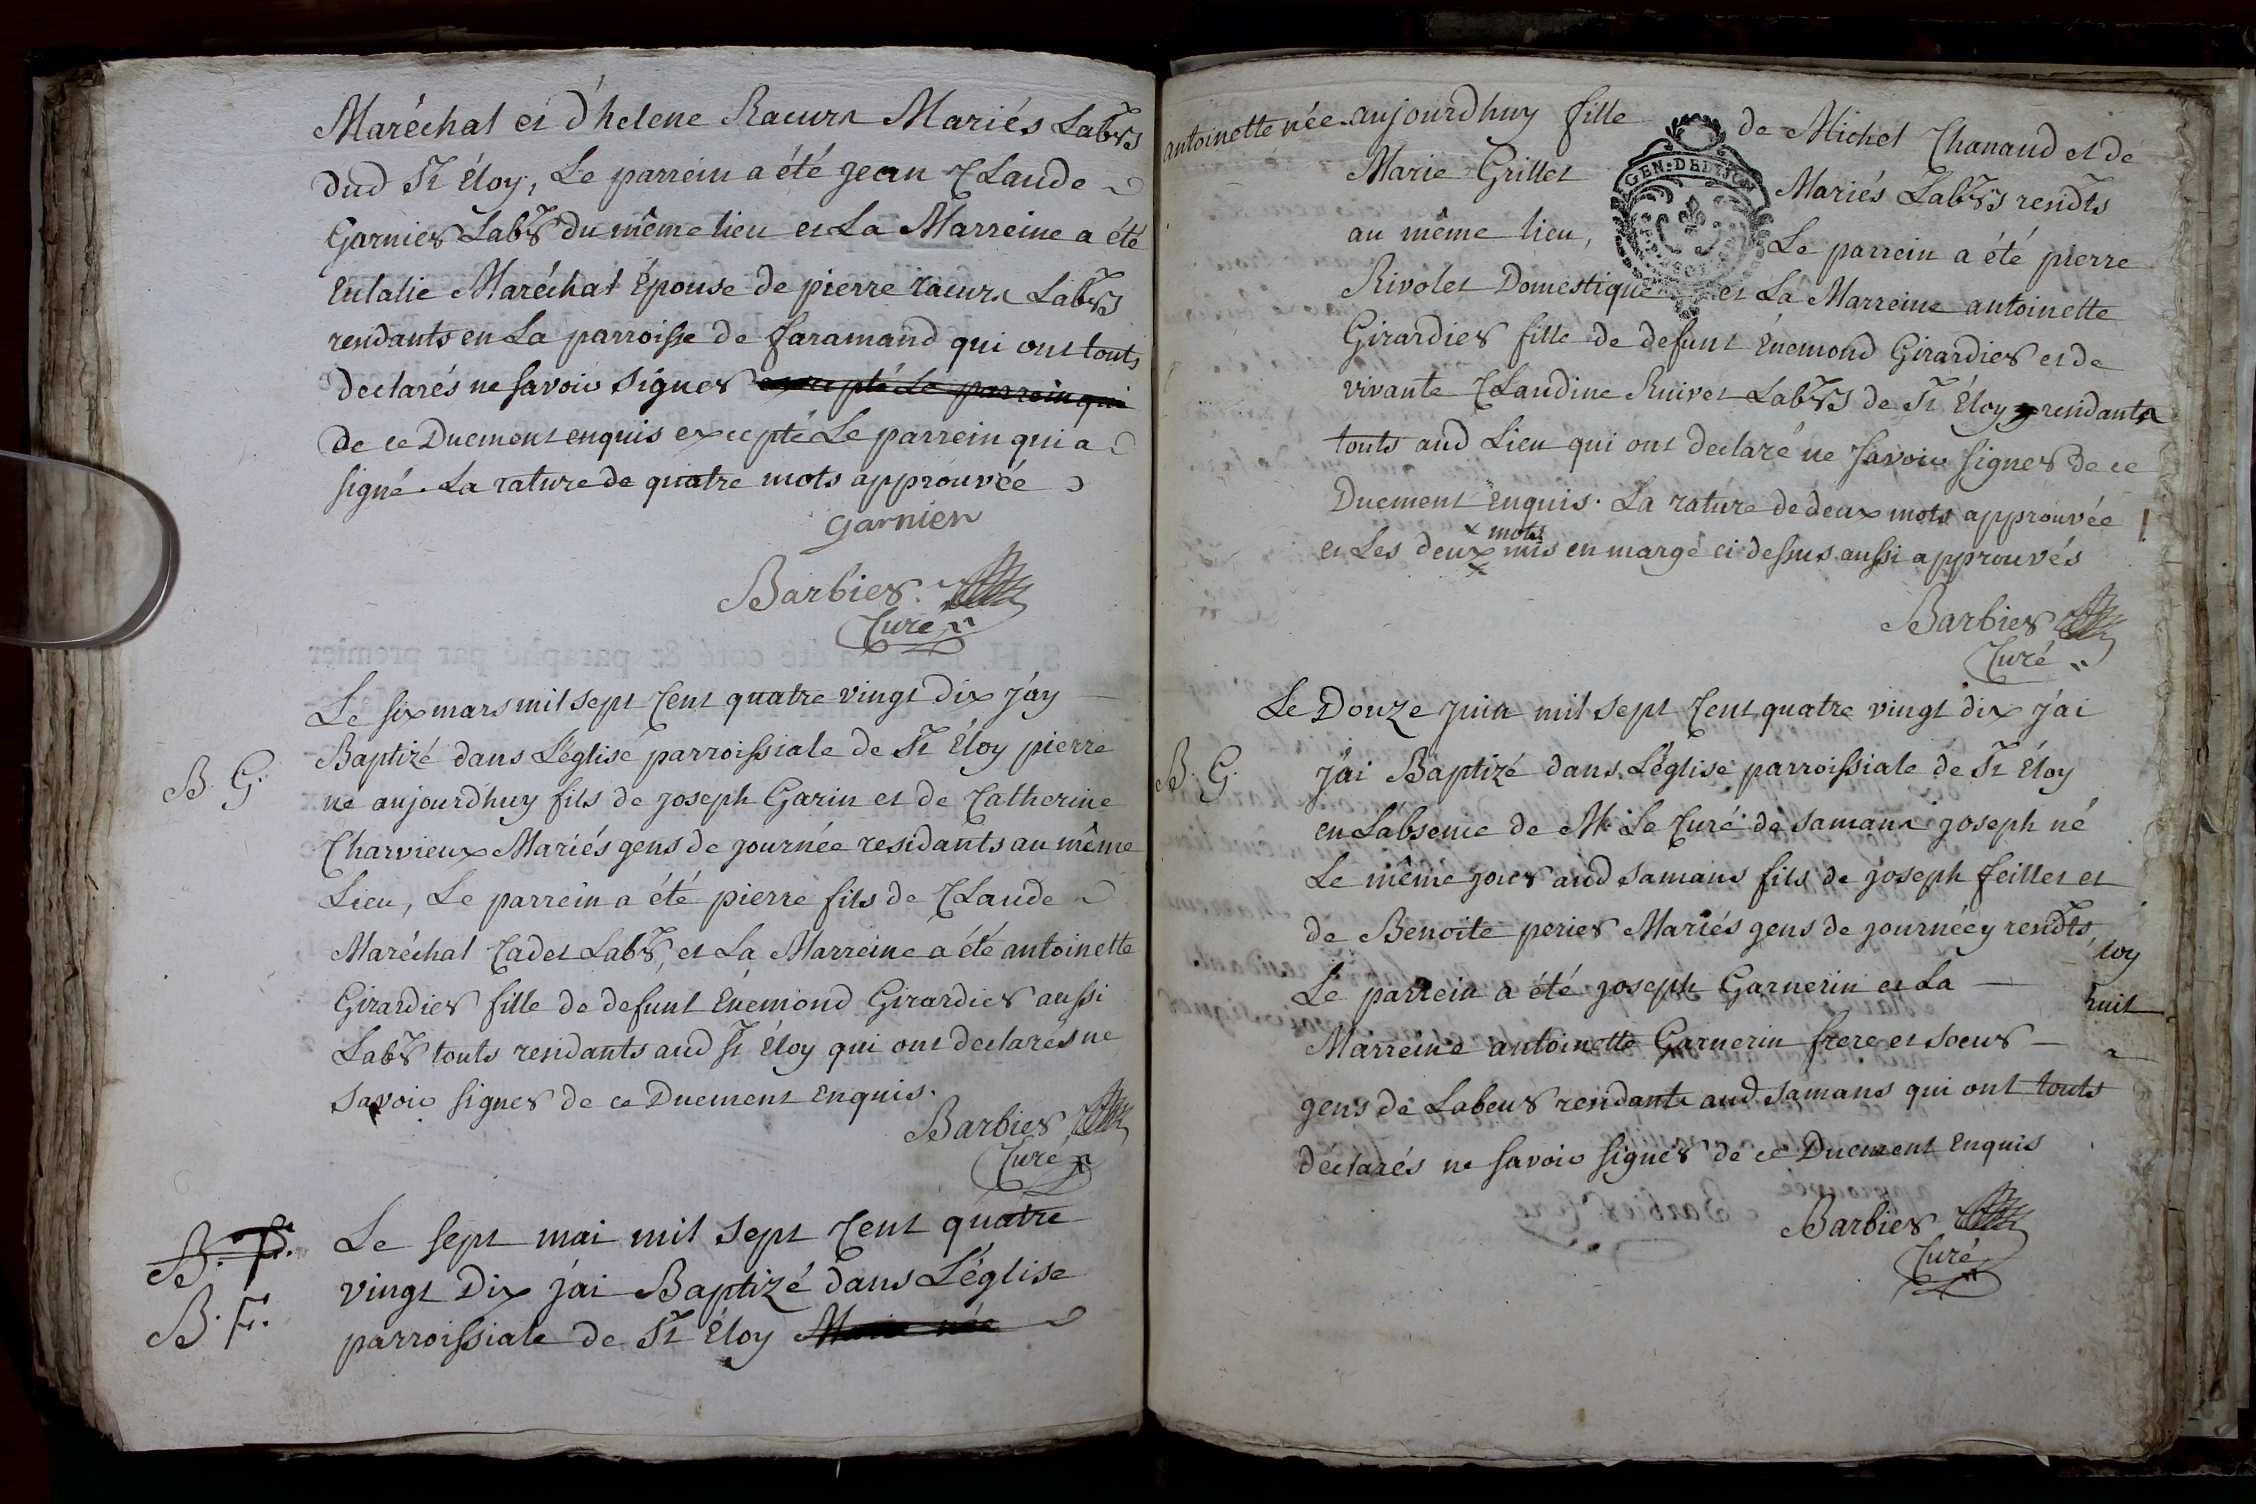 Maréchal et d'helene Racurt Mariés Labrs
dud St éloy, Le parrein a été jean Claude
Garnier Labr du même lieu et La Marreine a été
Eulalie Maréchal Épouse de pierre racurt Labrs
residants en La parroisse de faramand qui ont touts
declarés ne savoir signer excepté Le parrein qui
de ce Duement enquis excepté Le parrein qui a
signé. La rature de quatre mots approuvée
garnier
Barbier
Curé
Le six mars mil sept Cent quatre vingt dix j'ay
B. G.
Baptizé dans L'église parroissiale de St Éloy pierre
né aujourdhuy fils de joseph Garin et de Catherine
Charvieux Mariés gens de journée residants au même
Lieu, Le parrein a été pierre fils de Claude
Maréchal Cadet Labr, et La Marreine a été antoinette
Girardier fille de defunt Enemond Girardier aussi
Labr touts residants aud St éloy qui ont declarés ne
savoir signer de ce Duement enquis.
Barbier
Curé
Le sept mai mil sept Cent quatre
B. F.
vingt Dix j'ai Baptizé dans L'église
B. F.
parroissiale de St Éloy Marie née
antoinette née aujourdhuy fille de Michel Chanaud et de
Marie Grillet Mariés Labrs resid​ts
au même lieu, Le parrein a été pierre
Rivolet Domestique et La Marreine antoinette
Girardier fille de defunt Enemond Girardier et de
vivante Claudine Ruivet Labrs de St Éloy residants
touts aud Lieu qui ont declaré ne savoir signer de ce
Duement Enquis. La rature de deux mots approuvée
x mots
et Les deux mis en marge ci dessus aussi approuvés
Barbier
Curé
Le Douze juin mil sept Cent quatre vingt dix j'ai
B. G.
j'ai Baptizé dans L'église parroissiale de St Éloy
en L'absence de Mr Le Curé de samans joseph né
Le même jour aud samans fils de joseph feillet et
de Benoite perier Mariés gens de journée y residts
loy
Le parrein a été joseph Garnerin et La
huit
Marreine antoinette Garnerin frere et soeur
gens de Labeur residants aud samans qui ont touts
declarés ne savoir signer de ce Duement Enquis
Barbier
Curé